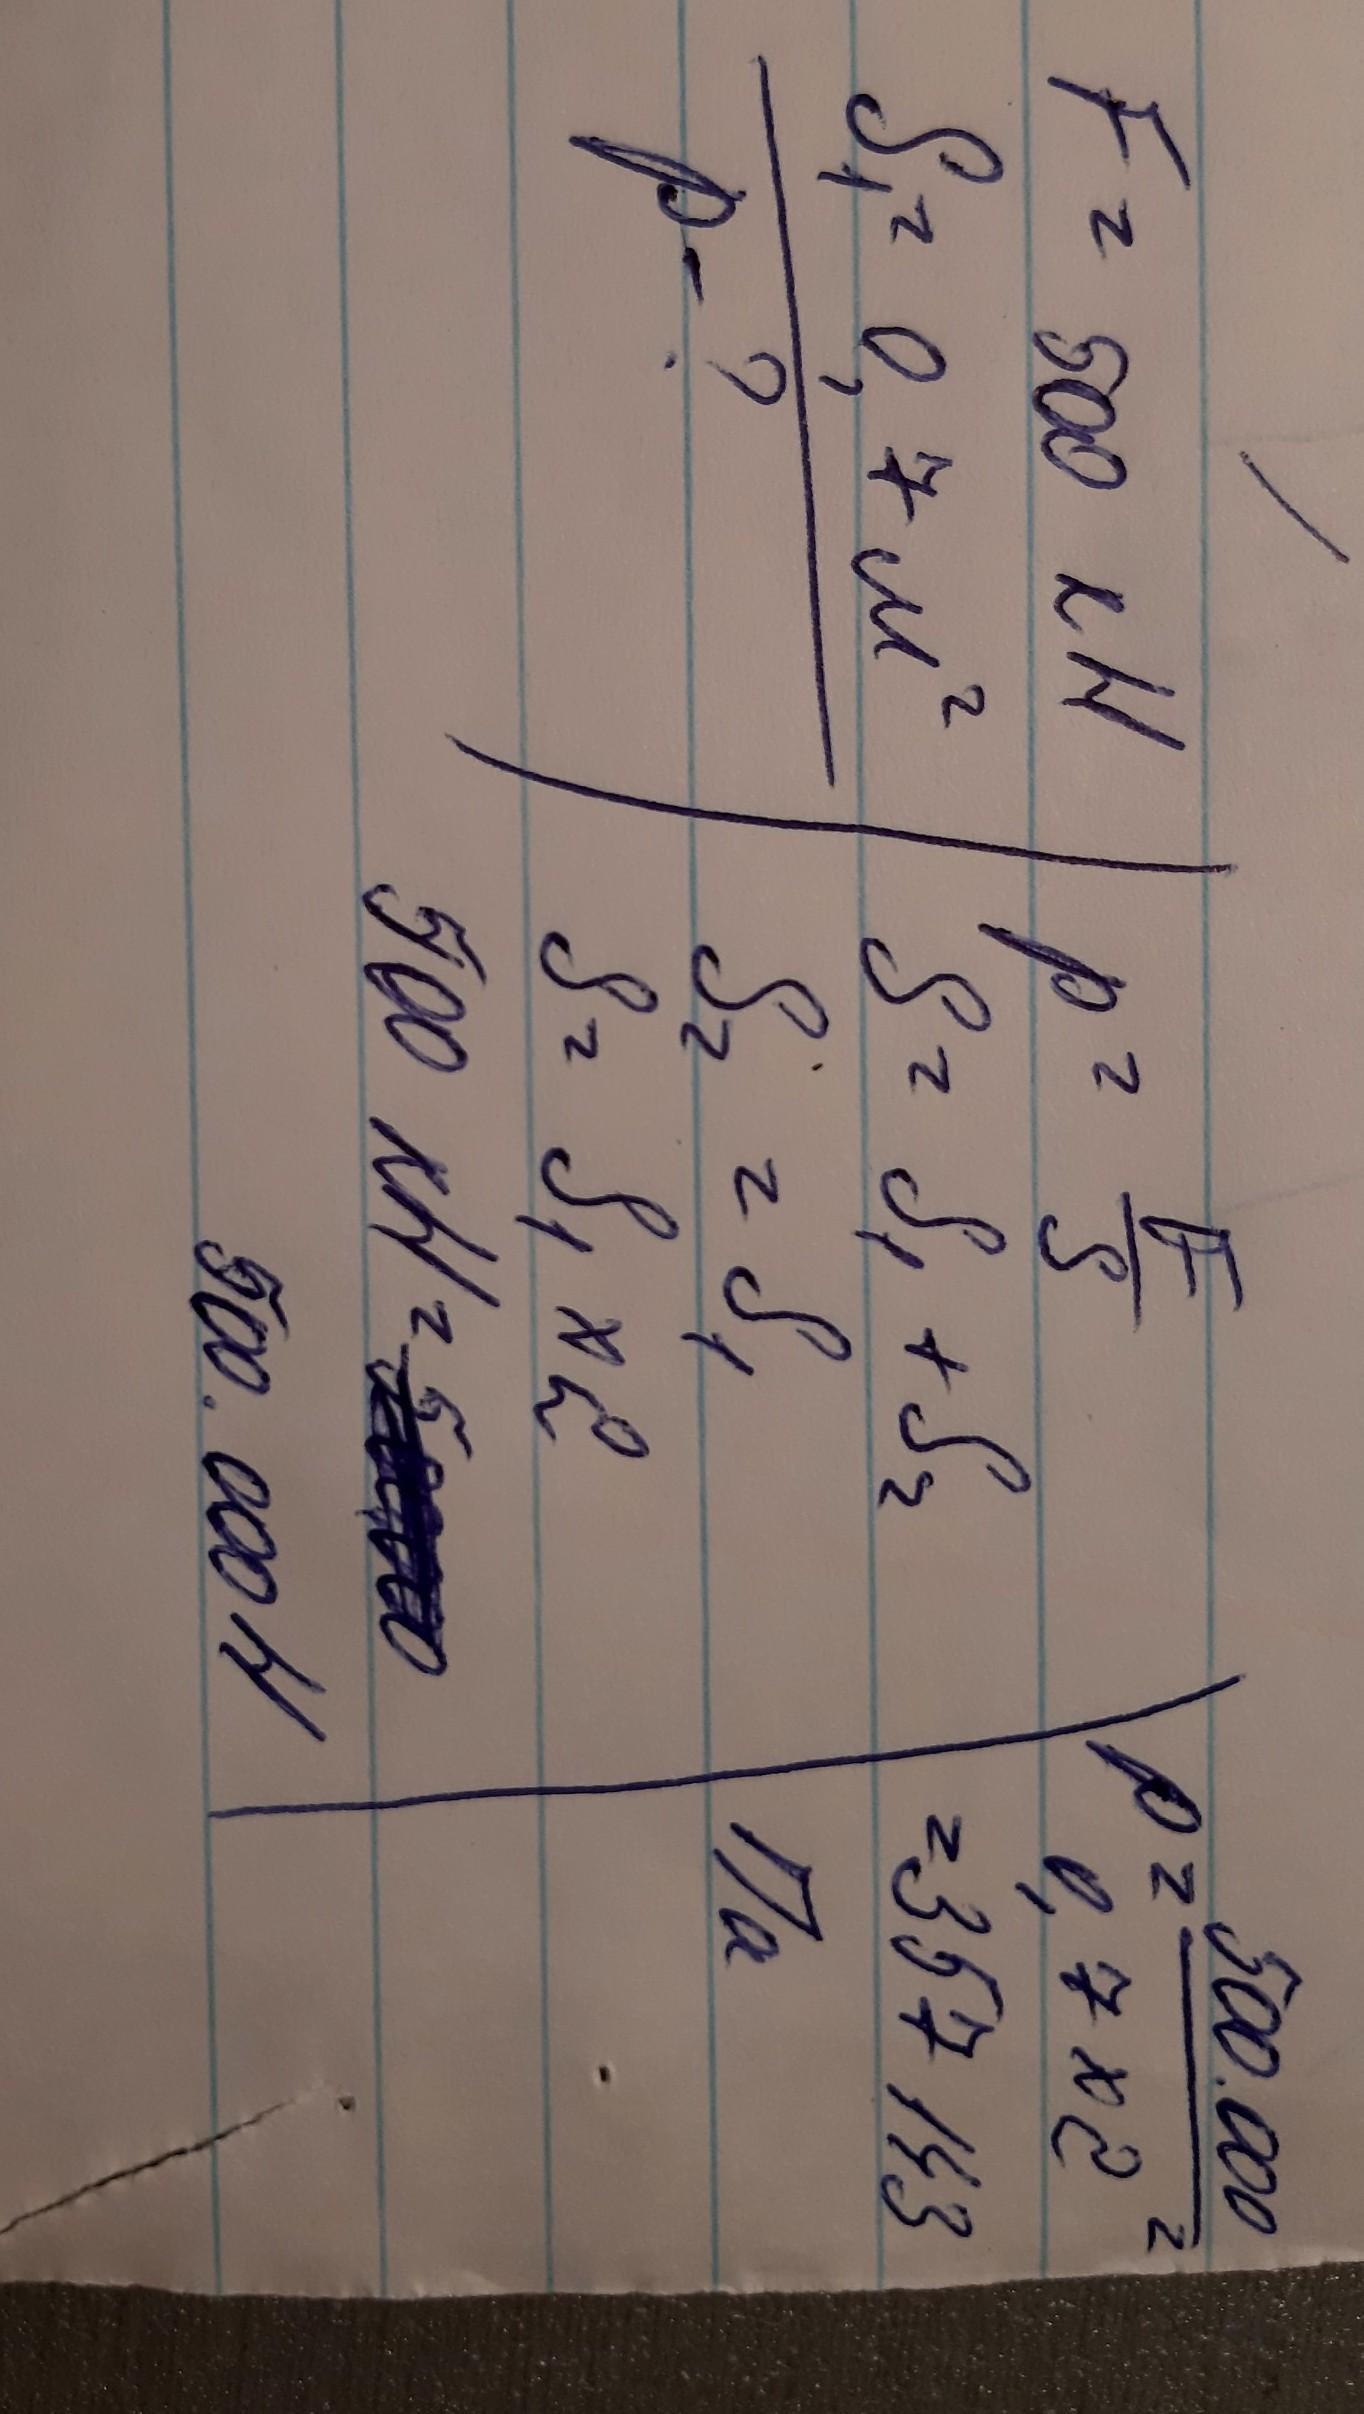 F = 500 кН
S₁ = 0,7 м²
p - ?
p = F/S
S = S₁ + S₂
S₂ = S₁
S = S₁ x 2
500 кН =
500.000 Н
p = 500.000 / 0,7 x 2 =
= 357 143
Па